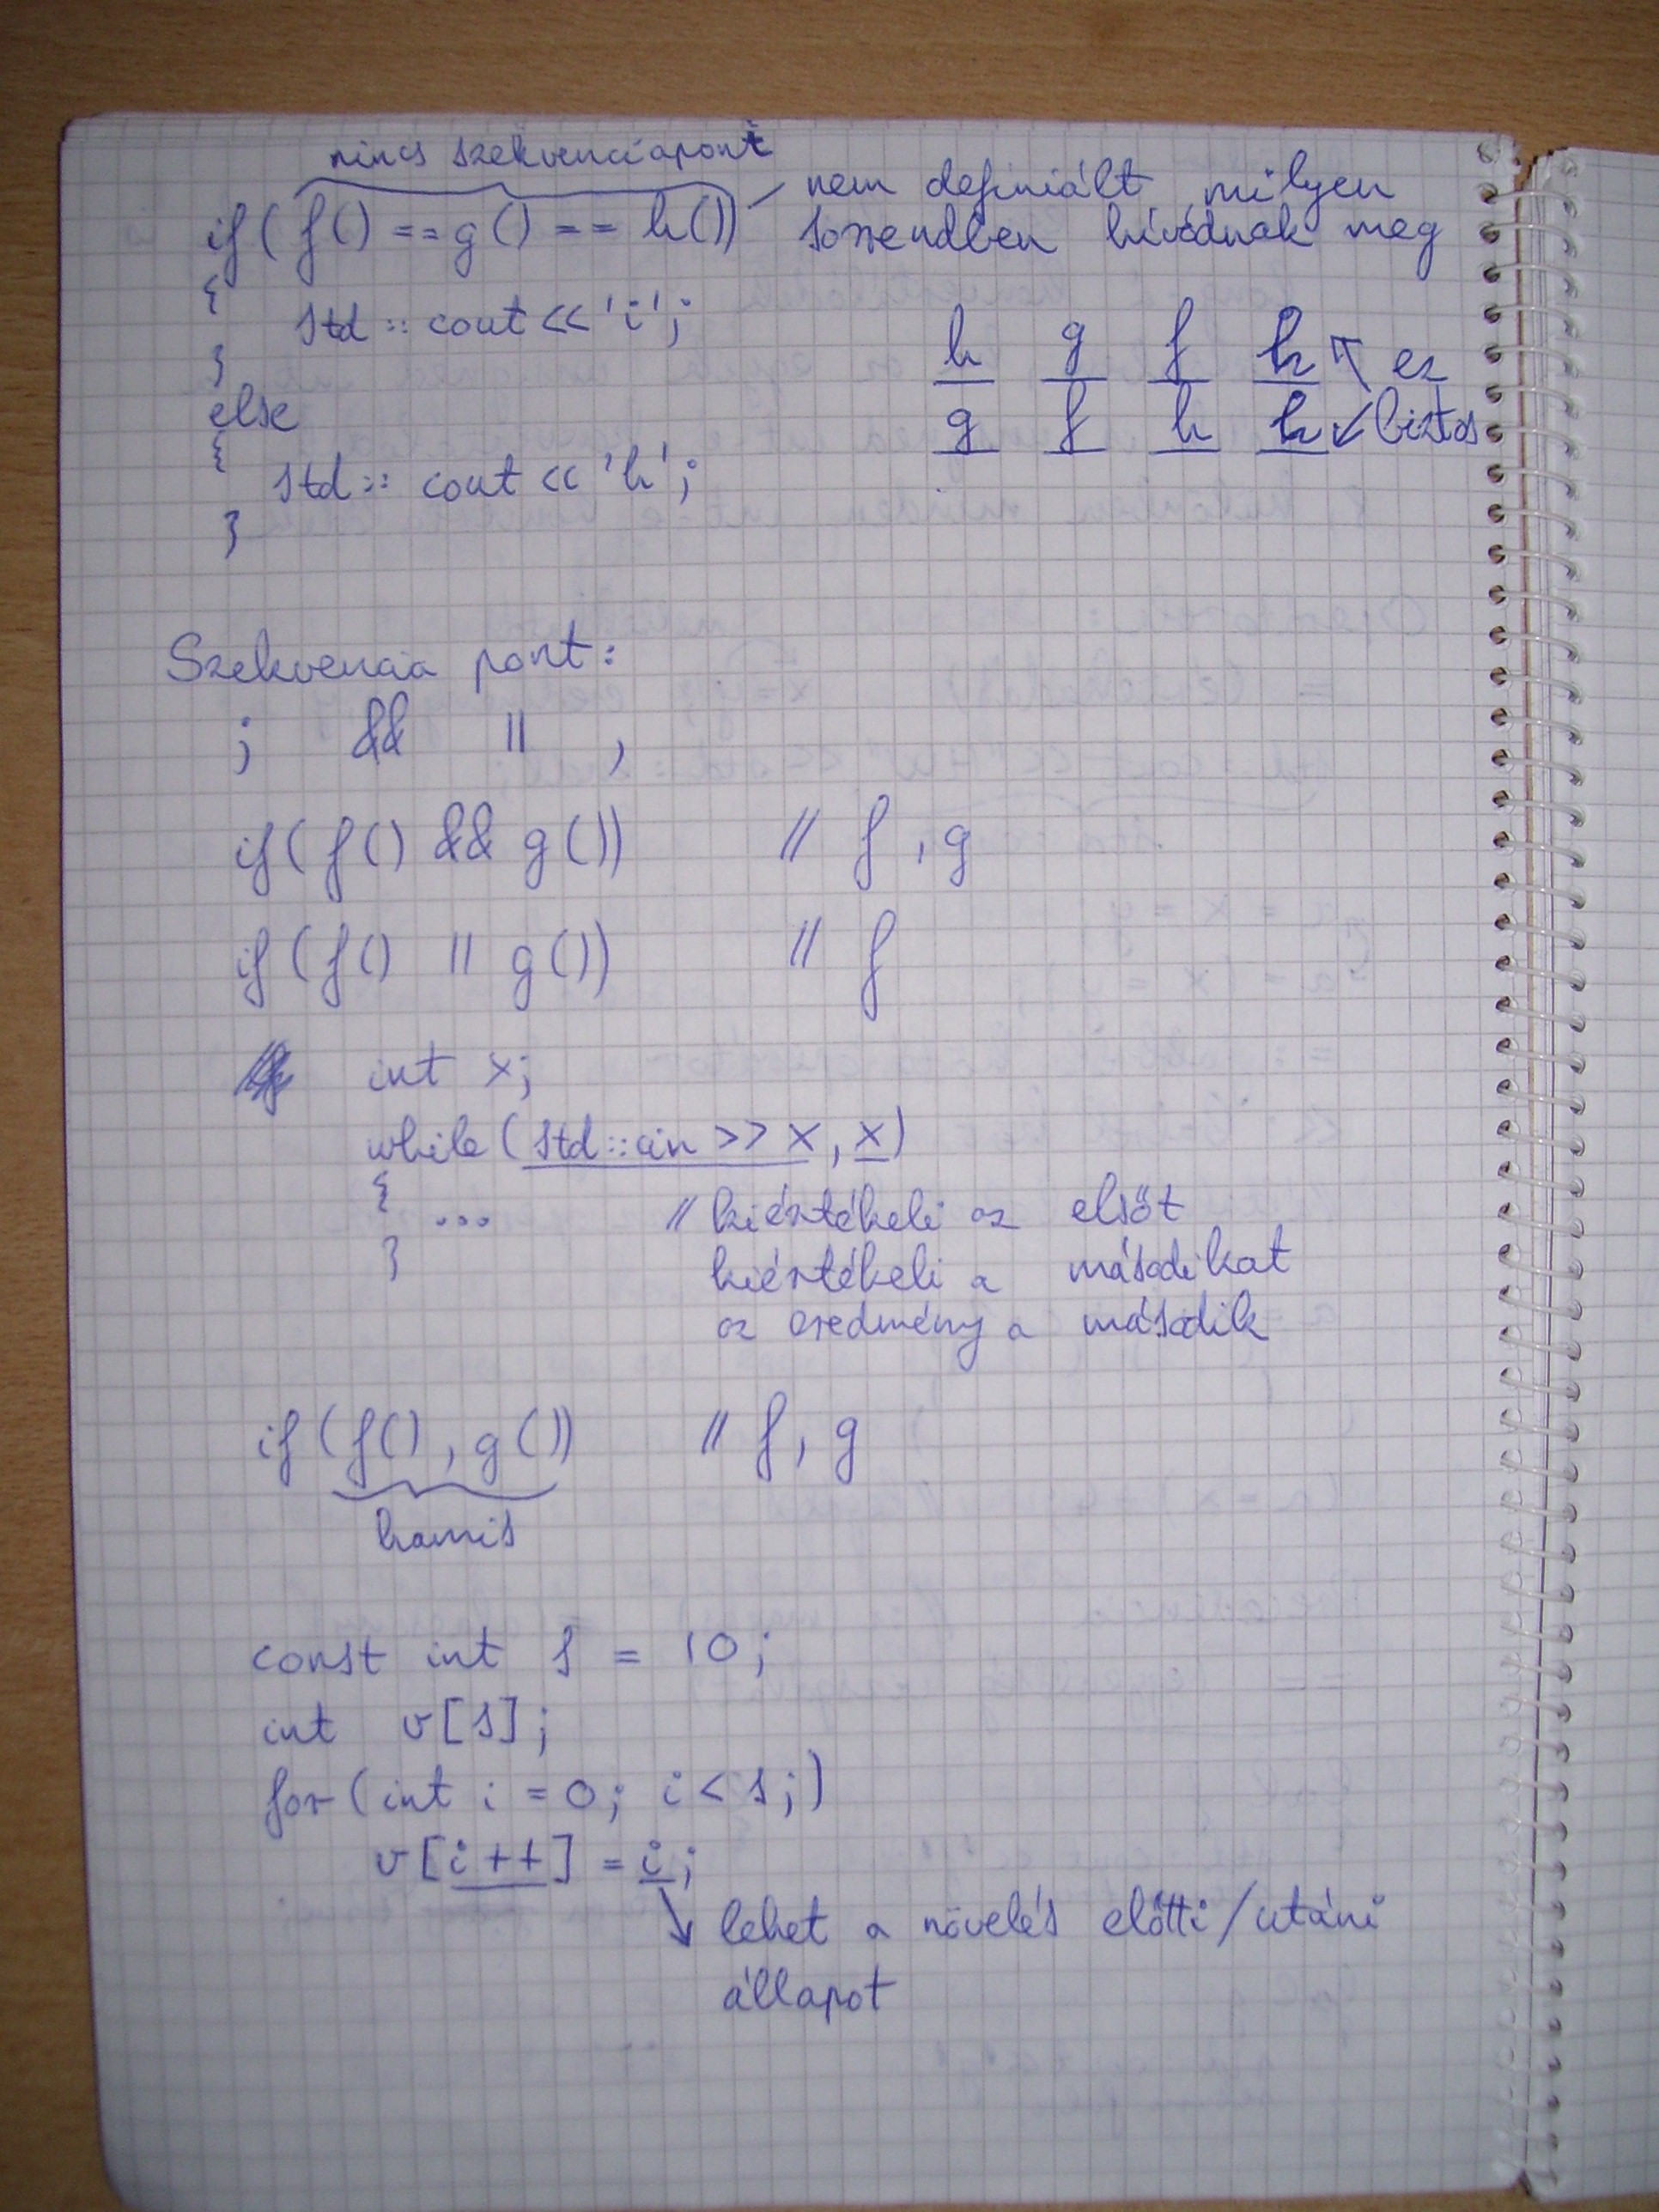 nincs szekvenciapont
if( f() == g() == h()) nem definiált, milyen
sorrendben hívódnak meg
{
std :: cout << 'i';
}
h g f h ↖ ez
else
g f h h ↙ biztos
{
std :: cout << 'h';
}
Szekvencia pont:
; && || ,
if( f() && g()) // f , g
if( f() || g()) // f
int x;
while( std::cin >> x, x)
{ ... // kiértékeli az elsőt
} kiértékeli a másodikat
az eredmény a második
if( f() , g()) // f, g
hamis
const int s = 10;
int v[s];
for( int i = 0; i < s;)
v[i++] = i;
↘ lehet a növelés előtti/utáni
állapot